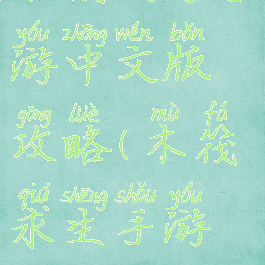 yóu zhōng wén bǎn
游中文版
gōng lüè mù fá
攻略(木筏
qiú shēng shǒu yóu
求生手游